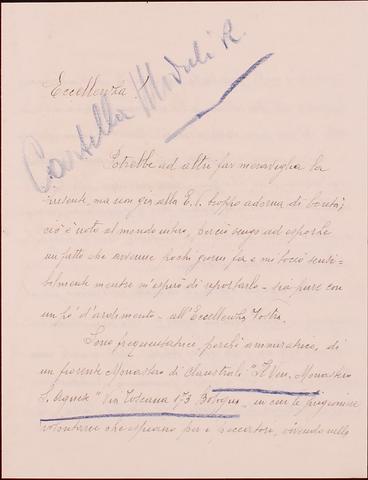 Eccellenza!
Cartella Moduli R.
Potrebbe ad altri far meraviglia la
presente, ma non già alla E.V. troppo adorna di bontà;
ciò è noto al mondo intero, perciò vengo ad esporle
un fatto che avvenne pochi giorni fa e mi toccò sensi-
bilmente mentre m'ispirò di riportarlo - sia pure con
un po' d'ardimento - all'Eccellenza Vostra.
Sono frequentatrice, perchè ammiratrice, di
un fiorente Monastero di Claustrali "Il Ven. Monastero
S. Agnese" Via Toscana 173 Bologna, in cui le prigioniere
volontarie che espiano per i peccatori, vivendo nella